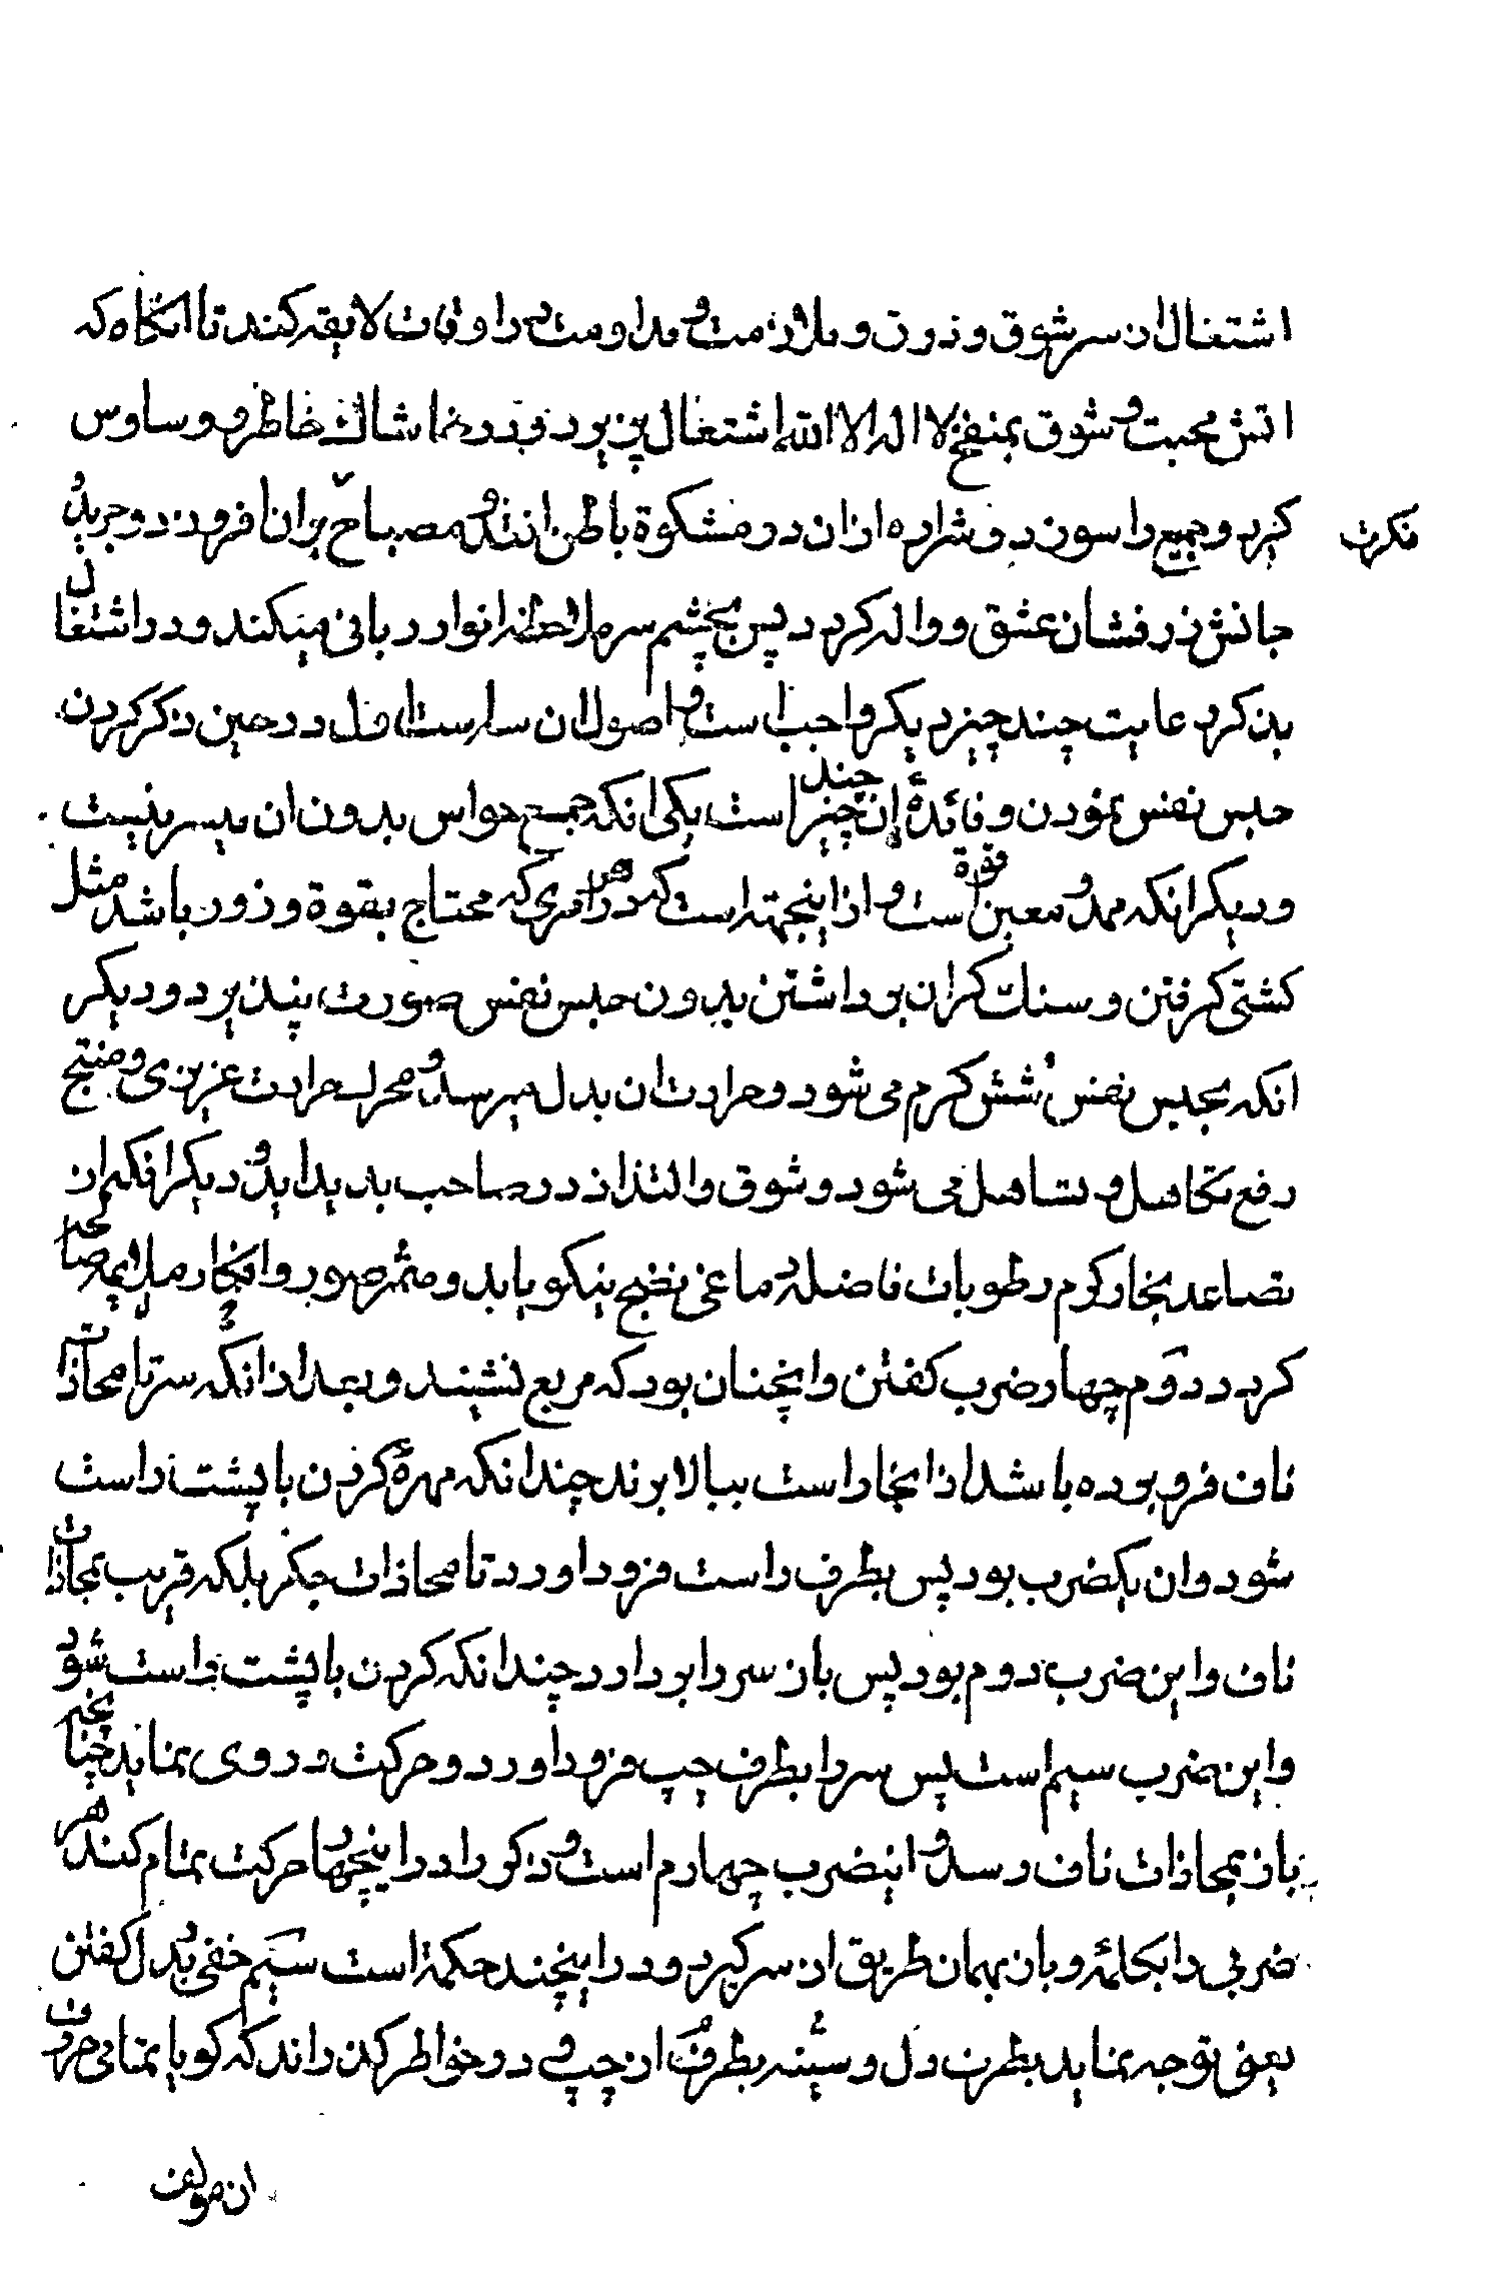 اشتغال از سر شوق و ذوق و ملازمت و مداومت در اوقات لایقه کنند تا انکاه که
اتش محبت و شوق بمنفخ لا اله الا الله اشتغال پذیرد و در خاشاک خاطر و وساوس
فکرت
کیرد و جمیع را سوزد و شراره ازان در مشکوة باطن انتد و مصباح بران افروزد و جریدۀ
جانش زرفشان عشق و واله کردد پس بچشم سر ملاحظۀ انوار ربانی میکند و در اشتغال
بذکر رعایت چند چیز دیکر واجب است و اصول ان سه است اول در حین ذکر کردن
حبس نفس نمودن و فائدۀ ان چند چیز است یکی انکه جمع حواس بدون ان میسر نیست
و دیکر انکه ممد و معین قوة است و از اینجهته است که در هر امری که محتاج بقوة و زور باشد مثل
کشتی کرفتن و سنک کران برداشتن بدون حبس نفس صورت پنذیرد و دیکر
انکه بحبس نفس شش کرم می شود و حرارت ان بدل میرسد و محرک حرارت غریزی و منتج
رفع تکاهل و تساهل می شود و شوق و التذاذ در صاحب بد پدا اید و دیکر انکه از
تصاعد بخار کرم رطوبات فاضله دماغی نضج نیکو یابد و مثمر صور و افکار ملایمه صحیحه
کردد دوم چهار ضرب کفتن و اینچنان بود که مربع نشیند و بعد از انکه سر تا محاذات
ناف فرو برده باشد از انجا راست ببالا برند چندانکه مهرۀ کردن با پشت راست
شود و ان یکضرب بود پس بطرف راست فرود اورد تا محاذات جکر بلکه قریب بمحاذات
ناف و این ضرب دوم بود پس باز سر را بردارد چندانکه کردن با پشت راست شود
و این ضرب سیم است پس سر را بطرف چپ فرود اورد و حرکت دروی نماید چنانچه
باز بمحاذات ناف رسد و اینضرب چهارم است و ذکر را در اینچهار حرکت تمام کند هر
ضربی را بکلمۀ و باز بهمان طریق از سر کیرد و در اینچند حکمة است سیم خفی بدل کفتن
یعنی توجه نماید بطرف دل و سینه بطرف از چپ و در خواطر کذراند که کویا تمامی حروف
ان مولف